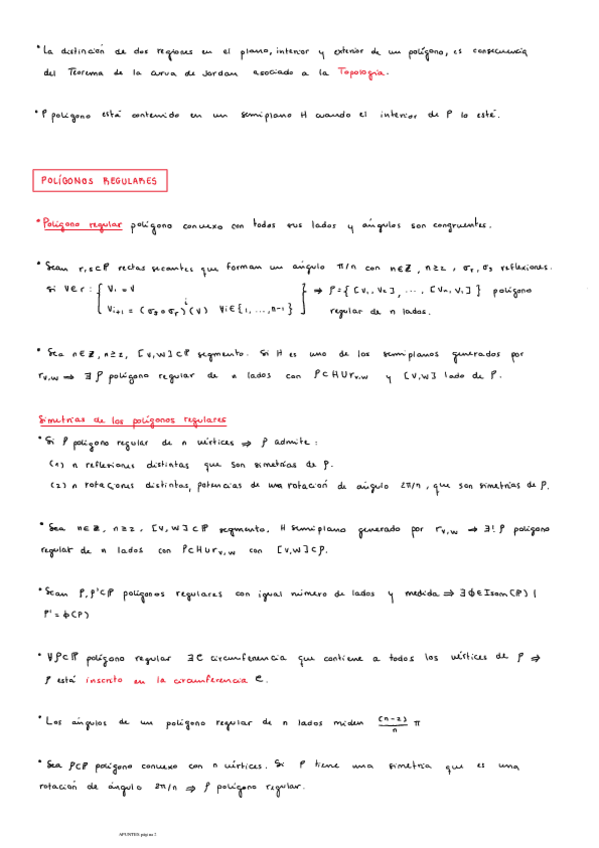 • La distinción de dos regiones en el plano, interior y exterior de un polígono, es consecuencia
del Teorema de la curva de Jordan asociado a la Topología.
• P polígono está contenido en un semiplano H cuando el interior de P lo esté.
POLÍGONOS REGULARES
• Polígono regular polígono convexo con todos sus lados y ángulos son congruentes.
• Sean r,s⊂ℙ rectas secantes que forman un ángulo π/n con n∈ℤ, n≥2, σr, σs reflexiones.
Si V∈r: { V₁ = V
Vᵢ₊₁ = (σs∘σr)ⁱ(V) ∀i∈{1, ..., n-1} } ⇒ P={[V₁,V₂], ..., [Vn,V₁]} polígono
regular de n lados.
• Sea n∈ℤ, n≥2, [V,W]⊂ℙ segmento. Si H es uno de los semiplanos generados por
r_{V,W} ⇒ ∃ P polígono regular de n lados con P⊂H∪r_{V,W} y [V,W] lado de P.
Simetrías de los polígonos regulares
• Si P polígono regular de n vértices ⇒ P admite:
(1) n reflexiones distintas que son simetrías de P.
(2) n rotaciones distintas, potencias de una rotación de ángulo 2π/n, que son simetrías de P.
• Sea n∈ℤ, n≥2, [V,W]⊂ℙ segmento, H semiplano generado por r_{V,W} ⇒ ∃! P polígono
regular de n lados con P⊂H∪r_{V,W} con [V,W]⊂P.
• Sean P,P'⊂ℙ polígonos regulares con igual número de lados y medida ⇒ ∃ϕ∈Isom(ℙ) |
P' = ϕ(P)
• ∀P⊂ℙ polígono regular ∃C circunferencia que contiene a todos los vértices de P ⇒
P está inscrito en la circunferencia C.
• Los ángulos de un polígono regular de n lados miden (n-2)/n π
• Sea P⊂ℙ polígono convexo con n vértices. Si P tiene una simetría que es una
rotación de ángulo 2π/n ⇒ P polígono regular.
APUNTES página 2